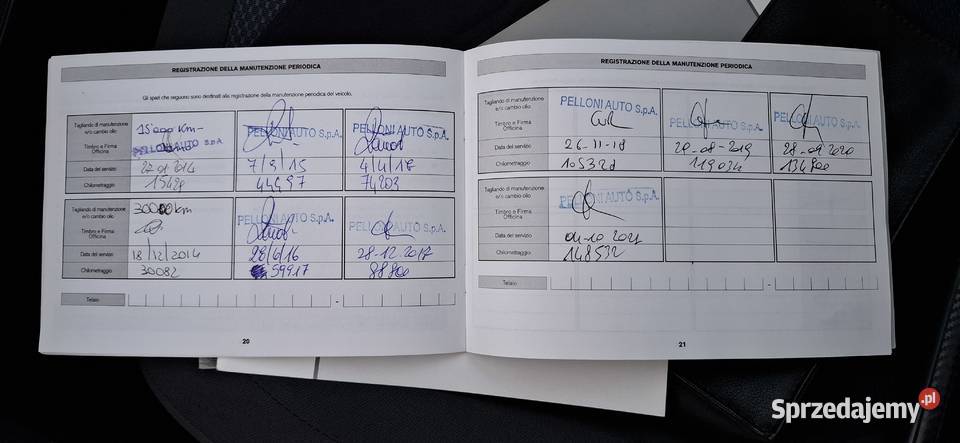 REGISTRAZIONE DELLA MANUTENZIONE PERIODICA
Gli spazi che seguono sono destinati alla registrazione della manutenzione periodica del veicolo.
Tagliando di manutenzione e/o cambio olio
15'000 Km-
Timbro e Firma Officina
PELLONI AUTO S.p.A.
PELLONI AUTO S.p.A.
PELLONI AUTO S.p.A.
Data del servizio
22 01 2014
7/9/15
4/4/17
Chilometraggio
15420
44497
74203
Tagliando di manutenzione e/o cambio olio
30000 km
Timbro e Firma Officina
PELLONI AUTO S.p.A.
PELLONI AUTO S.p.A.
Data del servizio
18/12/2014
28/6/16
28-12-2017
Chilometraggio
30082
59917
88800
Telaio
-
20
REGISTRAZIONE DELLA MANUTENZIONE PERIODICA
Tagliando di manutenzione e/o cambio olio
Timbro e Firma Officina
PELLONI AUTO S.p.A.
PELLONI AUTO S.p.A.
PELLONI AUTO S.p.A.
Data del servizio
26-11-18
20-08-2019
28-09-2020
Chilometraggio
105328
119034
134800
Tagliando di manutenzione e/o cambio olio
Timbro e Firma Officina
PELLONI AUTO S.p.A.
Data del servizio
04-10 2021
Chilometraggio
148532
Telaio
-
21
Sprzedajemy.pl